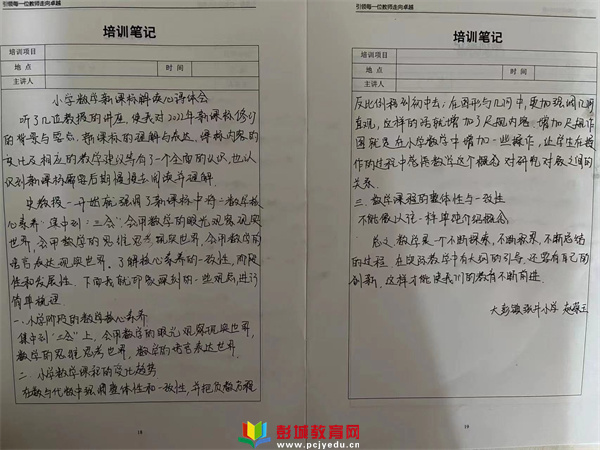 引领每一位教师走向卓越
培训笔记
培训项目
地点
时间
主讲人
小学数学新课标解读心得体会
听了几位教授的讲座，使我对2022年新课标修订
的背景与意义，新课标的理解与表达，课标内容的
变化及相应的教学建议等有了一个全面的认识，也认
识到新课标需要后期慢慢去阅读并理解。
史教授一开始就强调了新课标中将"数学核
心素养"集中到"三会"：会用数学的眼光观察现实
世界，会用数学的思维思考现实世界，会用数学的
语言表达现实世界。了解核心素养的一致性，阶段
性和发展性。下面我就印象深刻的一些观点进行
简单梳理
一、小学阶段的数学核心素养
集中到"三会"上，会用数学的眼光观察现实世界，
数学的思维思考世界，数学的语言表达世界。
二、小学数学课程的变化趋势
在数与代数中强调整体性和一致性，并把负数方程
18
引领每一位教师走向卓越
培训笔记
培训项目
地点
时间
主讲人
反比例移到初中去；在图形与几何中，更加强调几何
直观，这样的话就增加了尺规内容。增加尺规作
图就是在小学数学中增加一些操作，让学生在操
作的过程中感悟数学这个概念对研究对象之间的
关系。
三、数学课程的整体性与一致性
不能像以往一样单纯介绍概念
总之，数学是一个不断探索，不断积累，不断总结
的过程。在实际教学中有大师的引导，还要有自己的
创新，这样才能使我们的教育不断前进。
大彭镇张井小学
19
彭城教育网
www.pcjyedu.cn